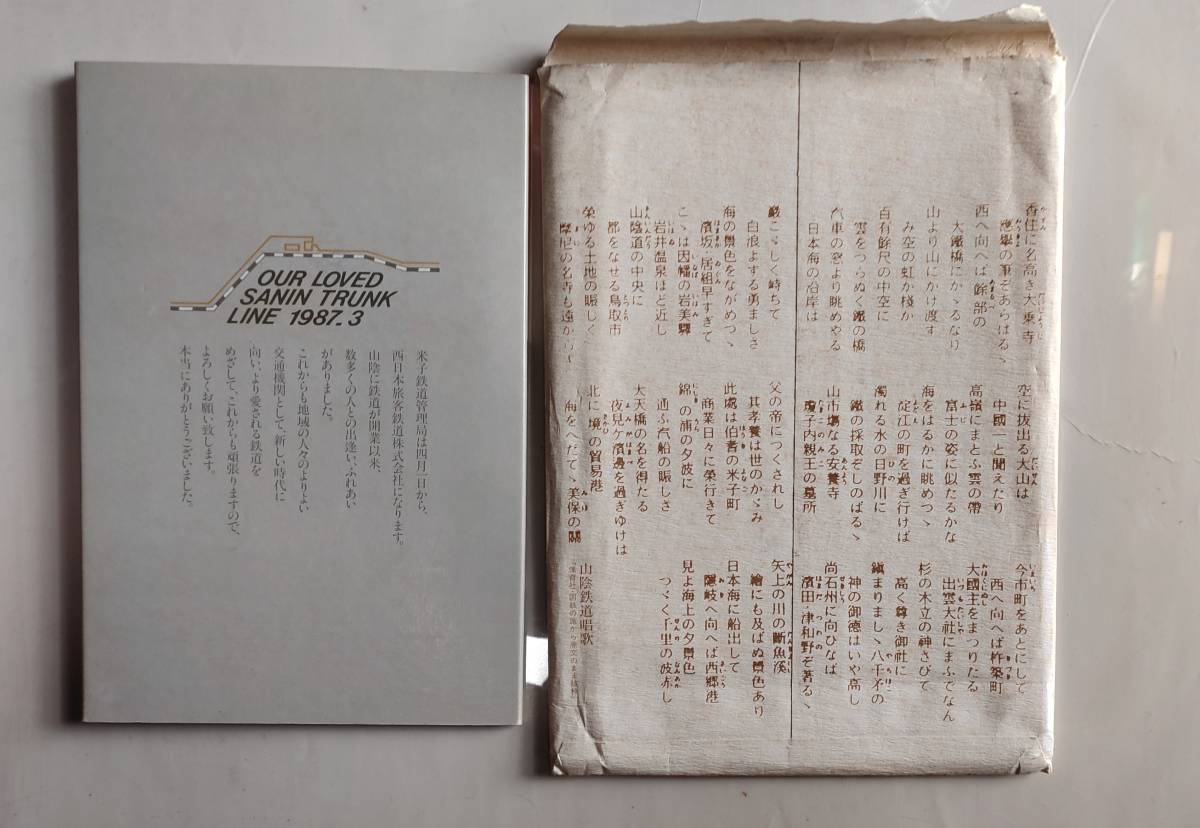 OUR LOVED
SANIN TRUNK
LINE 1987.3
米子鉄道管理局は四月一日から、
西日本旅客鉄道株式会社になります。
山陰に鉄道が開業以来、
数多くの人との出逢い、ふれあい
がありました。
これからも地域の人々のよりよい
交通機関として、新しい時代に
向い、より愛される鉄道を
めざして、これからも頑張りますので、
よろしくお願い致します。
本当にありがとうございました。
香住に名高き大乗寺
應擧の筆ぞあらはるゝ
西へ向へば餘部の
大鐵橋にかゝるなり
山より山にかけ渡す
み空の虹か棧か
百有餘尺の中空に
雲をつらぬく鐵の橋
汽車の窓より眺めやる
日本海の沿岸は
巌こゞしく峙ちて
白浪よする勇ましさ
海の景色をながめつゝ
濱坂 居組早すぎて
こゝは因幡の岩美驛
岩井温泉ほど近し
山陰道の中央に
都をなせる鳥取市
榮ゆる土地の賑しく
摩尼の名寺も遠から
空に抜出る大山は
中國一と聞えたり
高嶺にまとふ雲の帶
富士の姿に似たるかな
海をはるかに眺めつゝ
淀江の町を過ぎ行けば
濁れる水の日野川に
鐵の採取ぞしのばるゝ
山市場なる安養寺
瓊子内親王の墓所
父の帝につくされし
其孝養は世のかゞみ
此處は伯耆の米子町
商業日々に榮行きて
錦の浦の夕波に
通ふ汽船の賑しさ
大天橋の名を得たる
夜見ケ濱邊を過ぎゆけは
北に境の貿易港
海をへだてゝ美保の關
今市町をあとにして
西へ向へば杵築町
大國主をまつりたる
出雲大社にまふでなん
杉の木立の神さびて
高く尊き御社に
鎭まりましゝ八千矛の
神の御徳はいや高し
尚石州に向ひなば
濱田・津和野ぞ著るゝ
矢上の川の斷魚溪
繪にも及ばぬ景色あり
日本海に船出して
隠岐へ向へば西郷港
見よ海上の夕景色
つゞく千里の波赤し
山陰鉄道唱歌